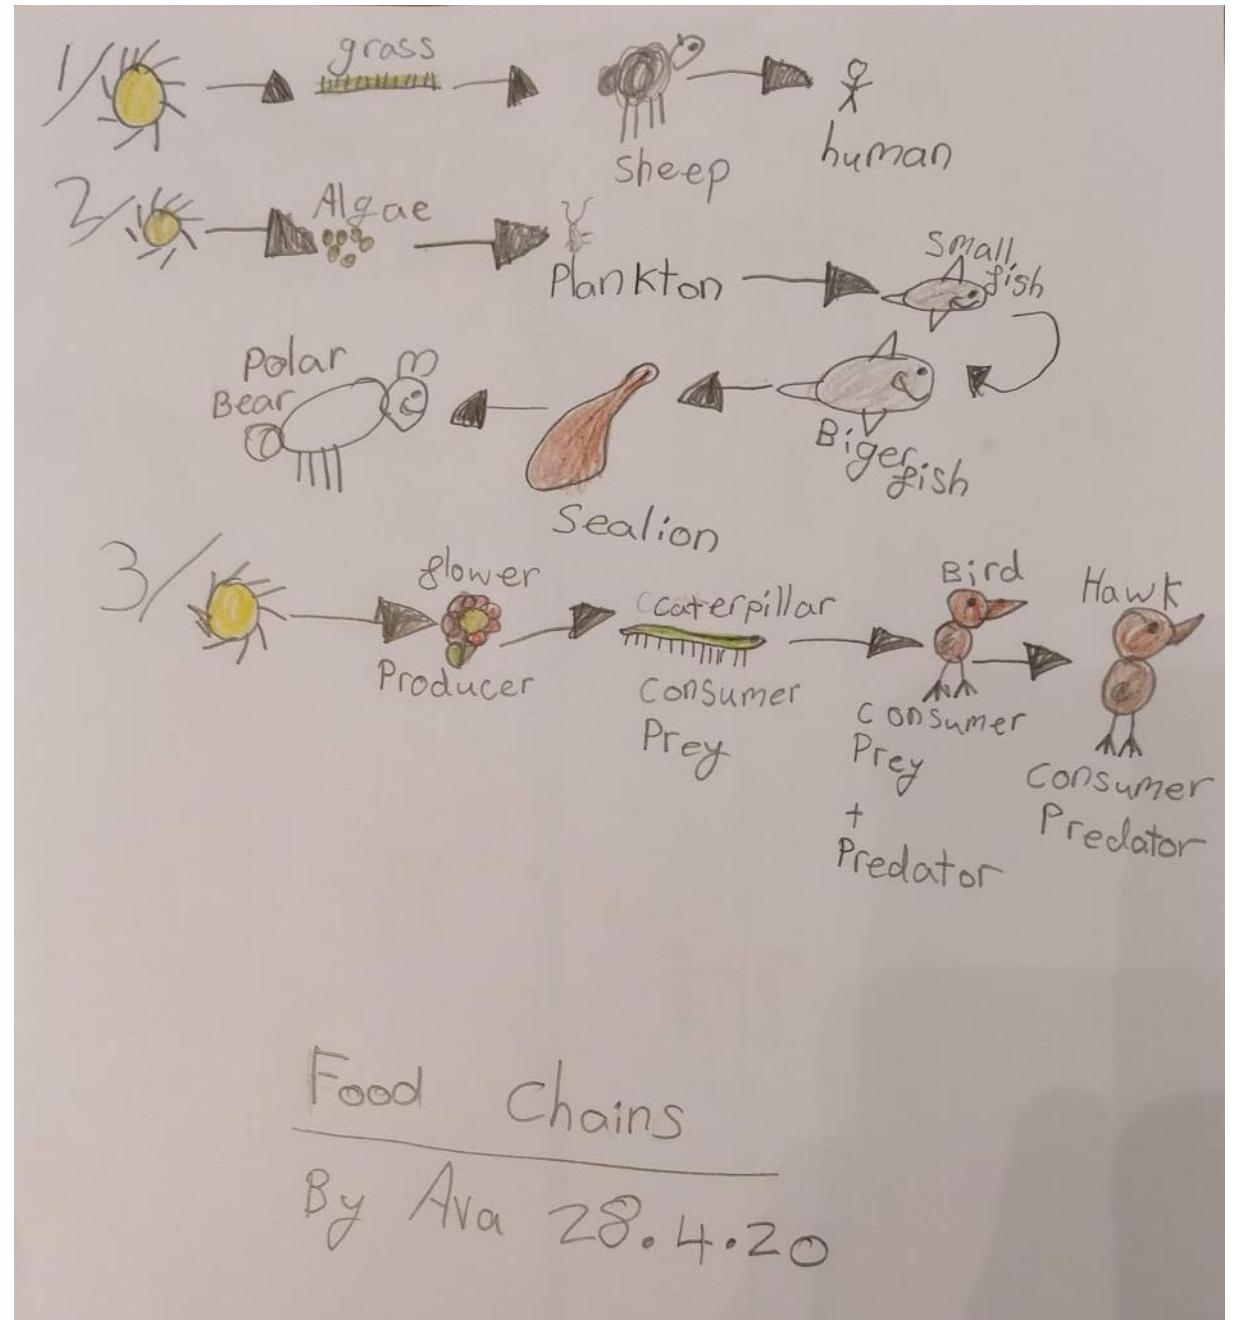 1/
grass
sheep
human
2/
Algae
Plankton
Small
fish
Biger
fish
Sealion
Polar
Bear
3/
flower
Producer
caterpillar
Consumer
Prey
Bird
Consumer
Prey
+
Predator
Hawk
Consumer
Predator
Food Chains
By Ava 28.4.20